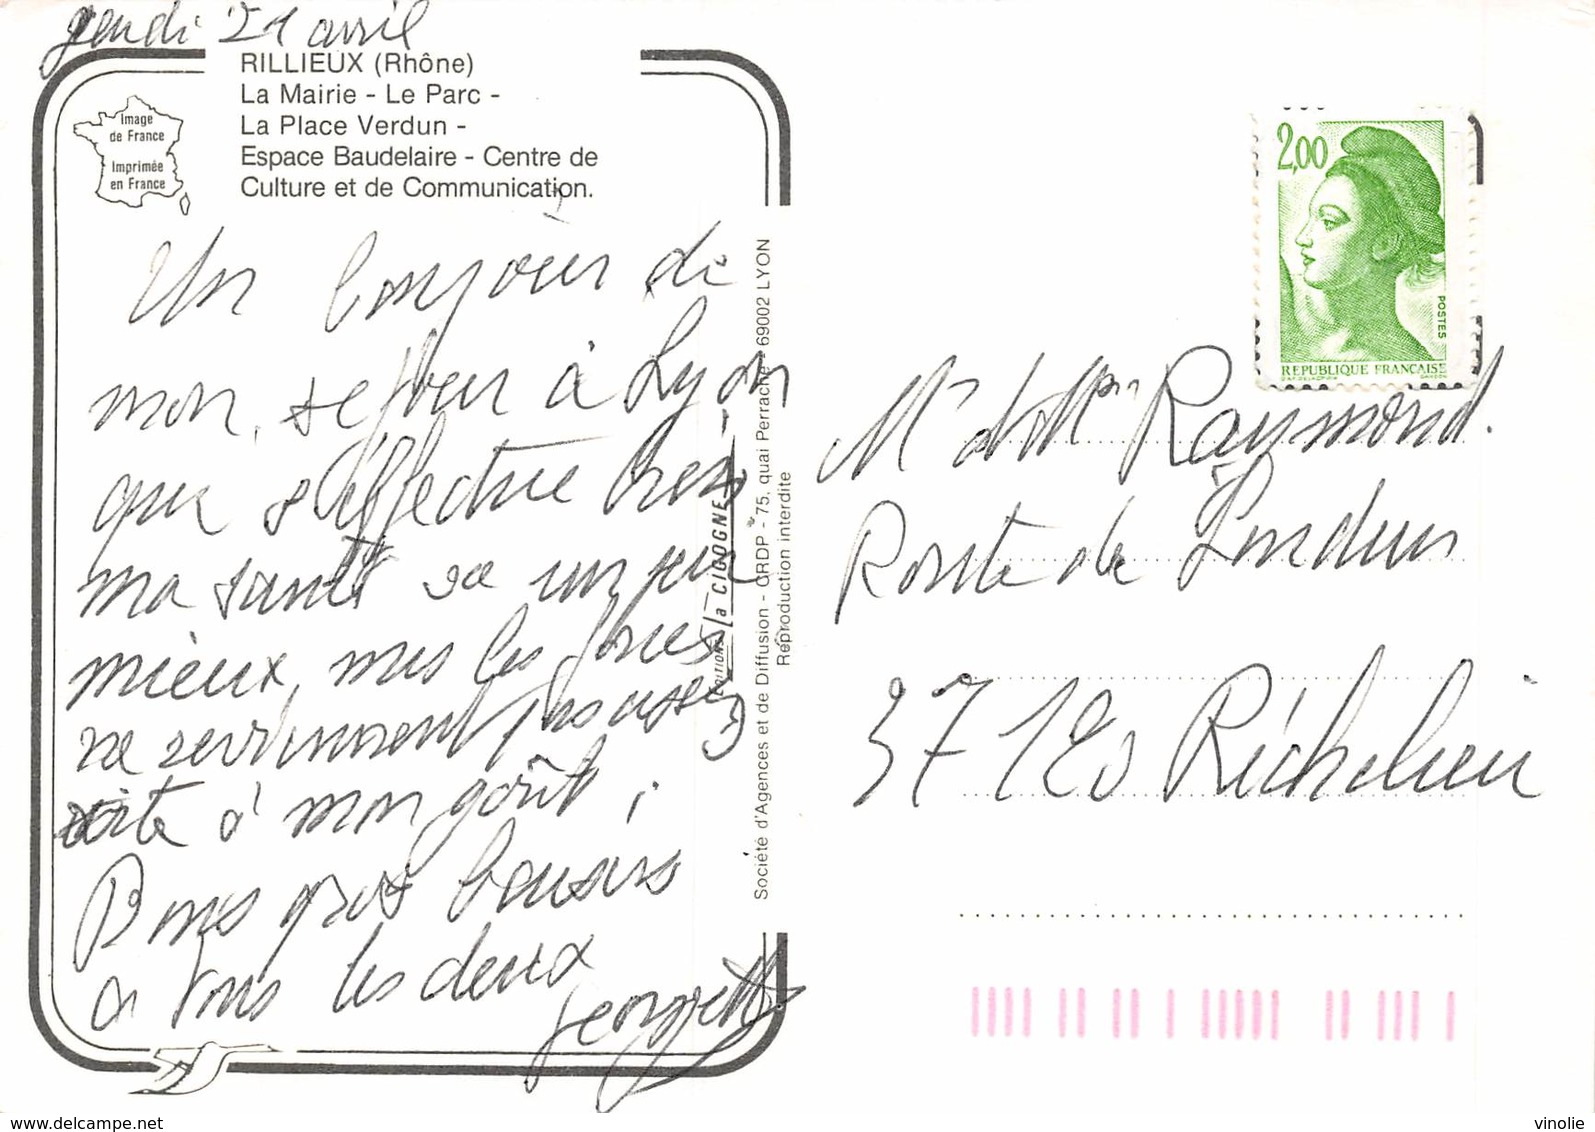 jeudi 21 avril
RILLIEUX (Rhône)
La Mairie - Le Parc -
La Place Verdun -
Espace Baudelaire - Centre de
Culture et de Communication.
Image
de France
Imprimée
en France
Un bonjour de
mon séjour à Lyon
qui s'effectue bien
ma santé va un peu
mieux, mes les forces
ne reviennent pas assez
vite à mon goût,
Bons gros baisers
a tous les deux
Georgette
EDITIONS la CIGOGNE
Société d'Agences et de Diffusion - CRDP - 75, quai Perrache - 69002 LYON
Reproduction interdite
2,00
POSTES
REPUBLIQUE FRANÇAISE
Mr et Mme Raymond
Route de Loudun
37120 Richelieu
delcampe.net
vinolie